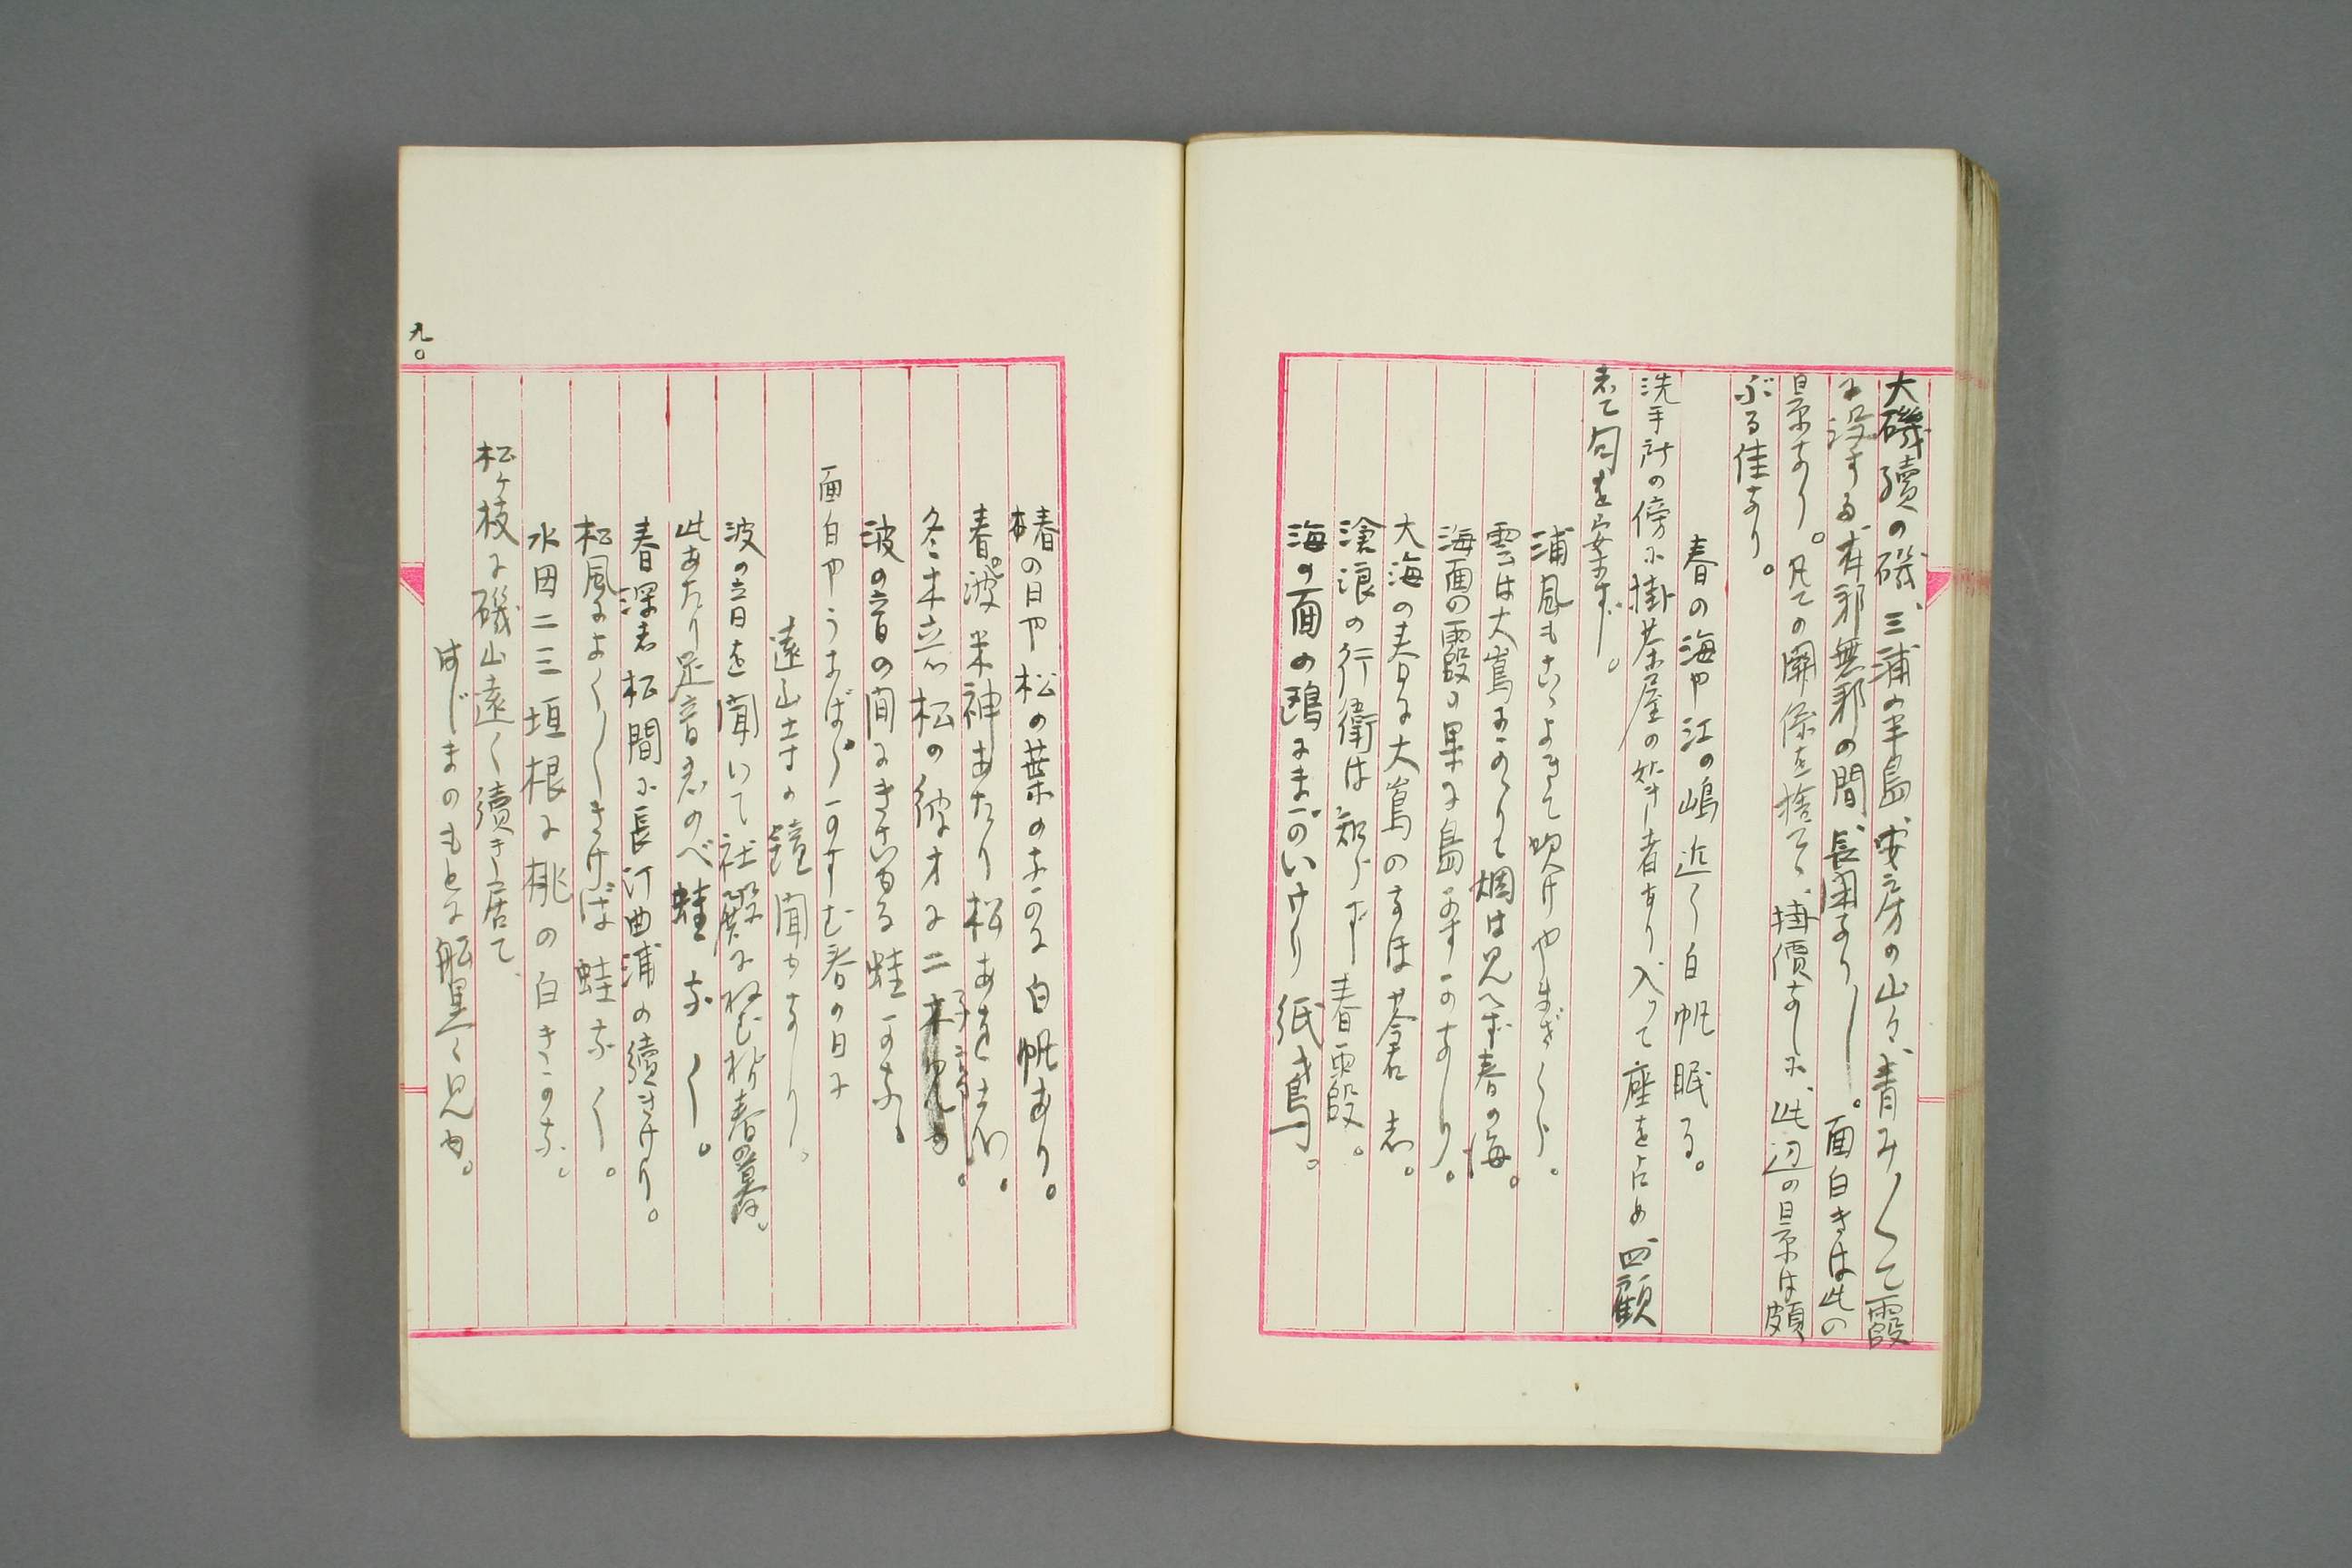 大磯續の磯、三浦の半島、安房の山々、青み〳〵て霞
に没する、有邪無邪の間、長閑なり〳〵。面白きは此の
景なり。凡ての関係を捨てゝ、掛價なしに、此辺の景は頗
ぶる佳なり。
春の海や江の嶋近く白帆眠る。
洗手所の傍に掛茶屋の如き者あり入つて座を占め四顧
志て句を案ず。
浦風もこゝよきて吹け やまざくら。
雲は大嶌に
烟は見へず春の海。
海面の霞の果に島
なり。
大海の春日に大嶌のなほ
志。
滄浪の行衛は知らず春霞。
海の面の鴎にま
けり紙鳶。
春の日や松の葉の
白帆あり。
春。波
神あたり松あを
冬木立
松の彼方に二
波の音の間にき
る蛙かな。
面白やうな
かすむ春の日に
遠山寺の鐘聞ゆなり。
波の音を聞いて社殿にねむ
春の暮。
此あたり足音志のべ蛙なく。
春深き松間に長汀曲浦の續きけり。
松風に
きけば蛙なく。
水田二三垣根に桃の白きかな。
松ヶ枝に磯山遠く續き居て、
はじまのもとに船
見ゆ。
九〇